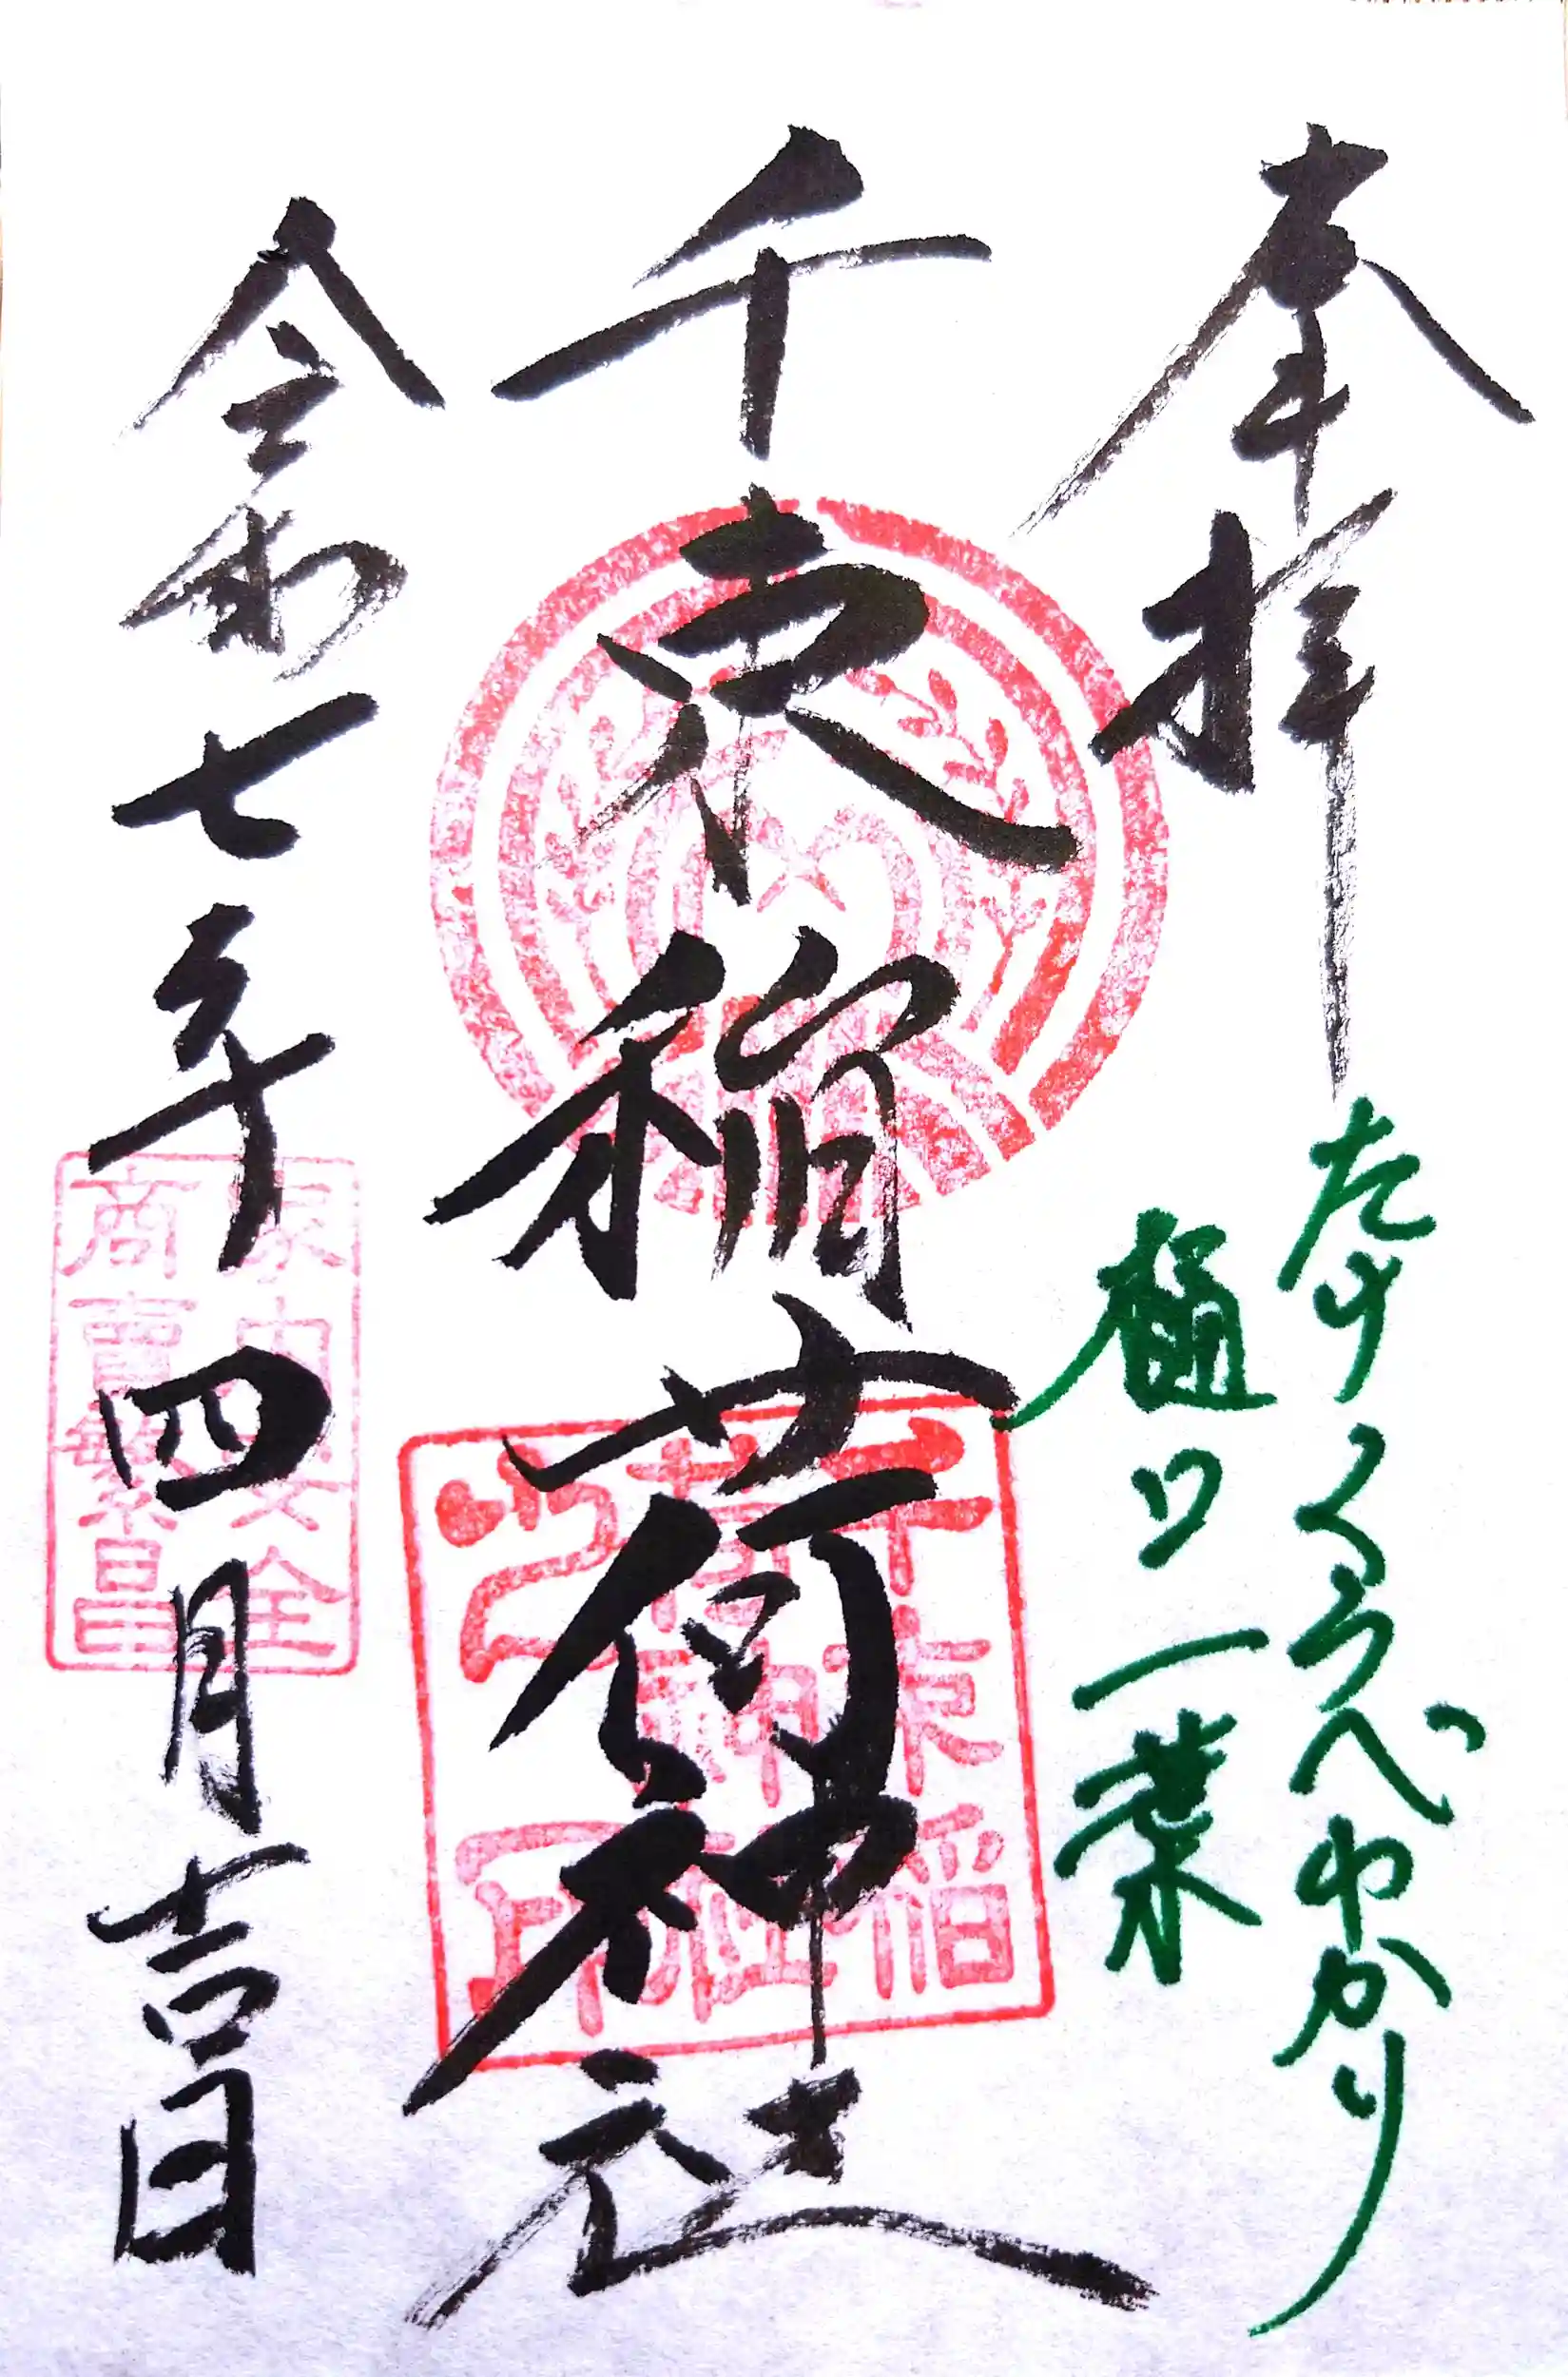 奉拝
たけくらべゆかり
樋口一葉
千束稲荷神社
千束稲
荷神社
之印
令和七年四月吉日
家内安全
商売繁昌